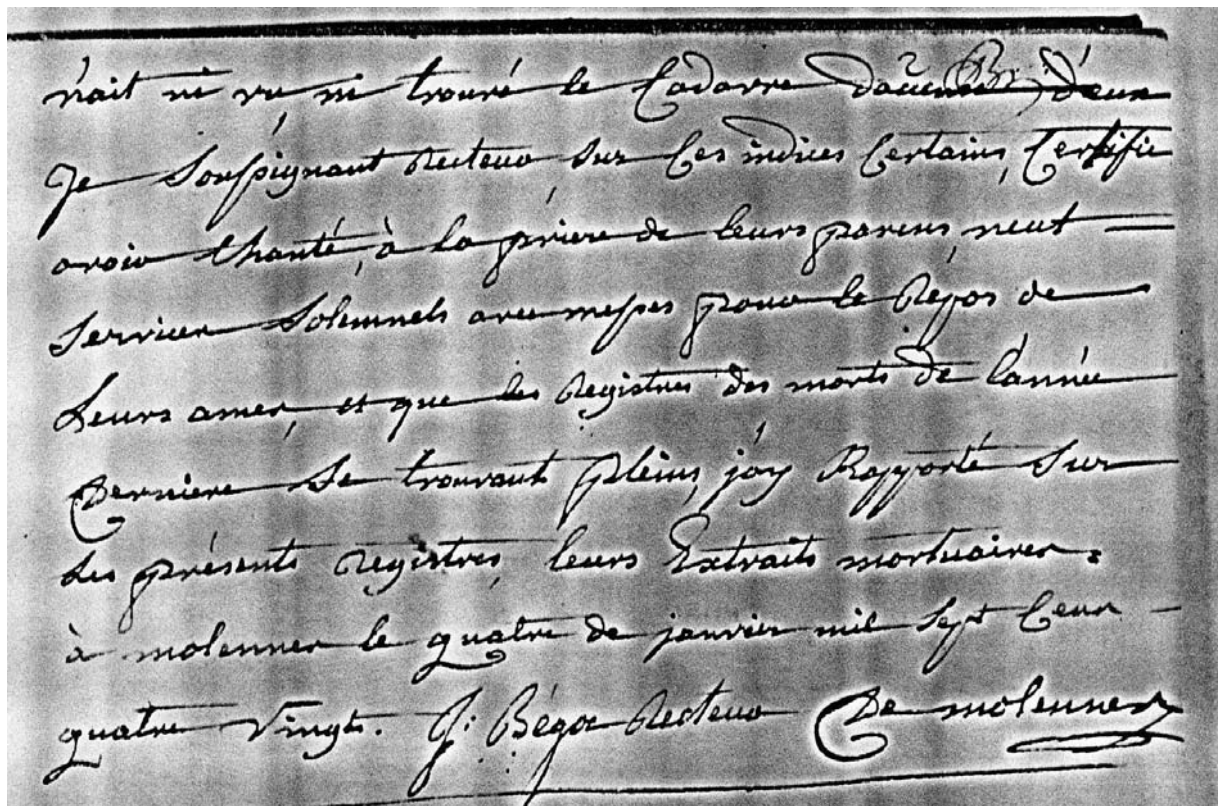 n'ait ni vu ni trouvé le Cadavre d'aucun d'eux
Je Soussignant Recteur sur ces indices Certains, Certifie
avoir Chanté, à la prière de leurs parens, neuf
Services Solemnels avec messes pour le Répos de
Leurs ames, et que les Registres des morts de l'année
Derniere Se trouvant pleins, j'ay Rapporté Sur
Les présents Registres, leurs Extraits mortuaires.
à molennes le quatre de janvier mil Sept Cent
quatre Vingt. J: Bégoc Recteur De molennes